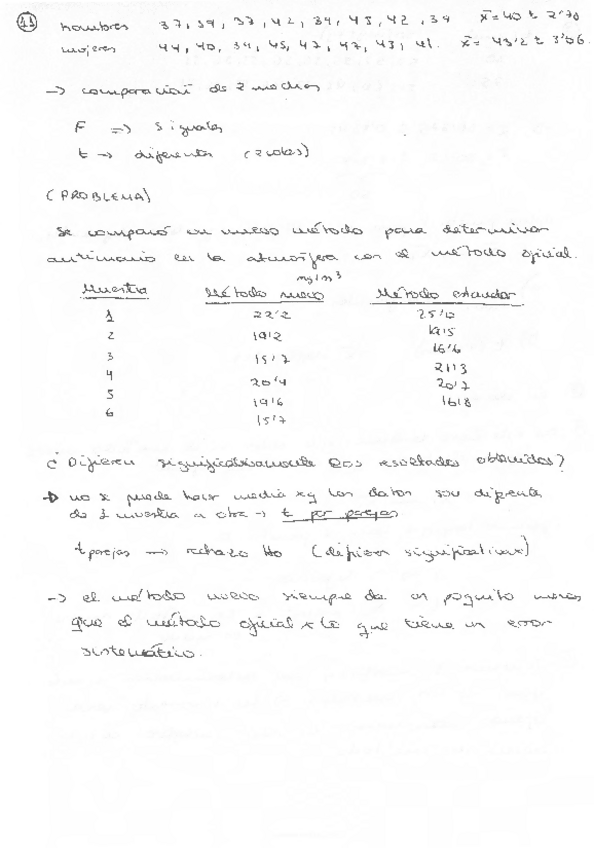 hombres 37, 39, 37, 42, 39, 43, 42, 39 x̄=40 ± 2'70
mujeres 44, 40, 39, 45, 47, 47, 43, 41. x̄= 43'2 ± 3'06.
→ comparación de 2 medias
F => s iguales
t → diferentes (2 colas)
(PROBLEMA)
Se comparó un nuevo método para determinar
antimonio en la atmósfera con el método oficial.
mg/m³
Muestra Método nuevo Método estandar
1 22'2 25'0
2 19'2 19'5
3 15'7 16'6
4 20'4 21'3
5 19'6 20'7
6 15'7 16'8
¿ Difieren significativamente los resultados obtenidos?
→ no se puede hacer media xq los datos son diferentes
de 1 muestra a otra → t por parejas
t parejas → rechazo Ho (difieren significativax)
→ el método nuevo siempre da un poquito menos
que el método oficial x lo que tiene un error
sistemático.